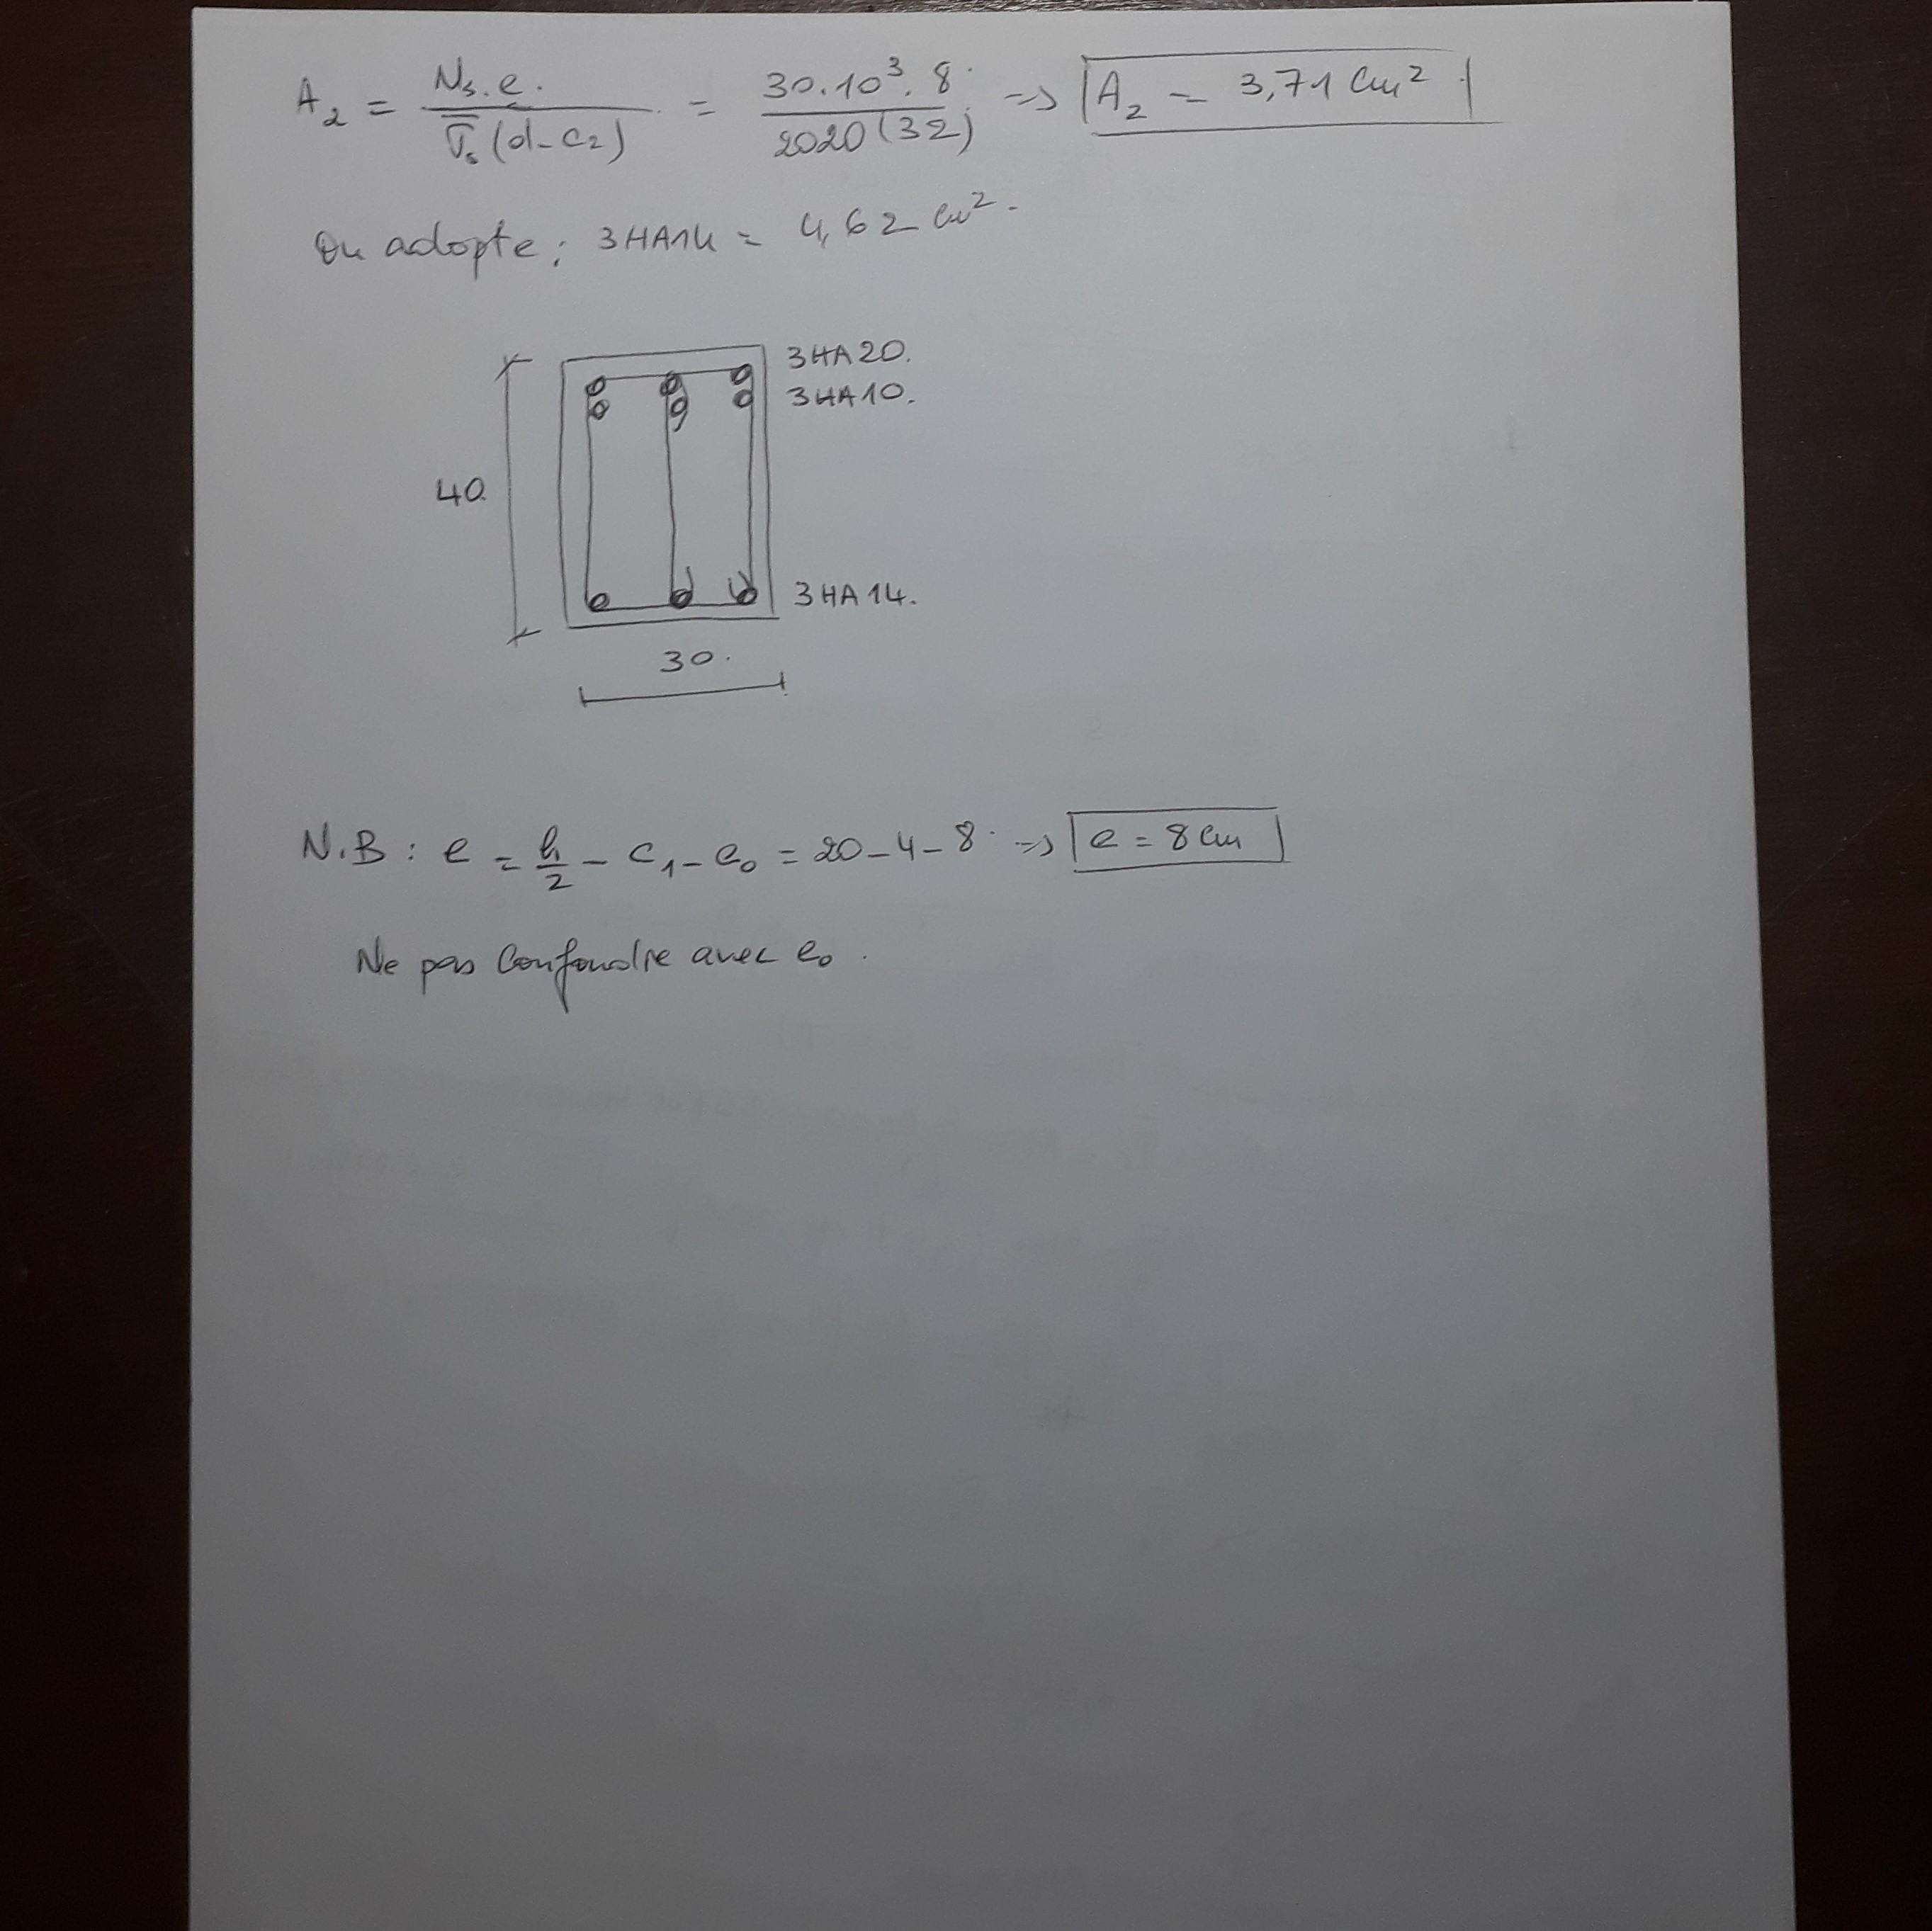 A₂ = Ns.e. / σ̄s (d-c₂) = 30.10³.8 / 2020 (32) => A₂ = 3,71 cm²
On adopte : 3HA14 = 4,62 cm².
3HA20.
3HA10.
40.
3HA14.
30.
N.B : e = h/2 - c₁ - e₀ = 20-4-8 => e = 8 cm
Ne pas confondre avec e₀.